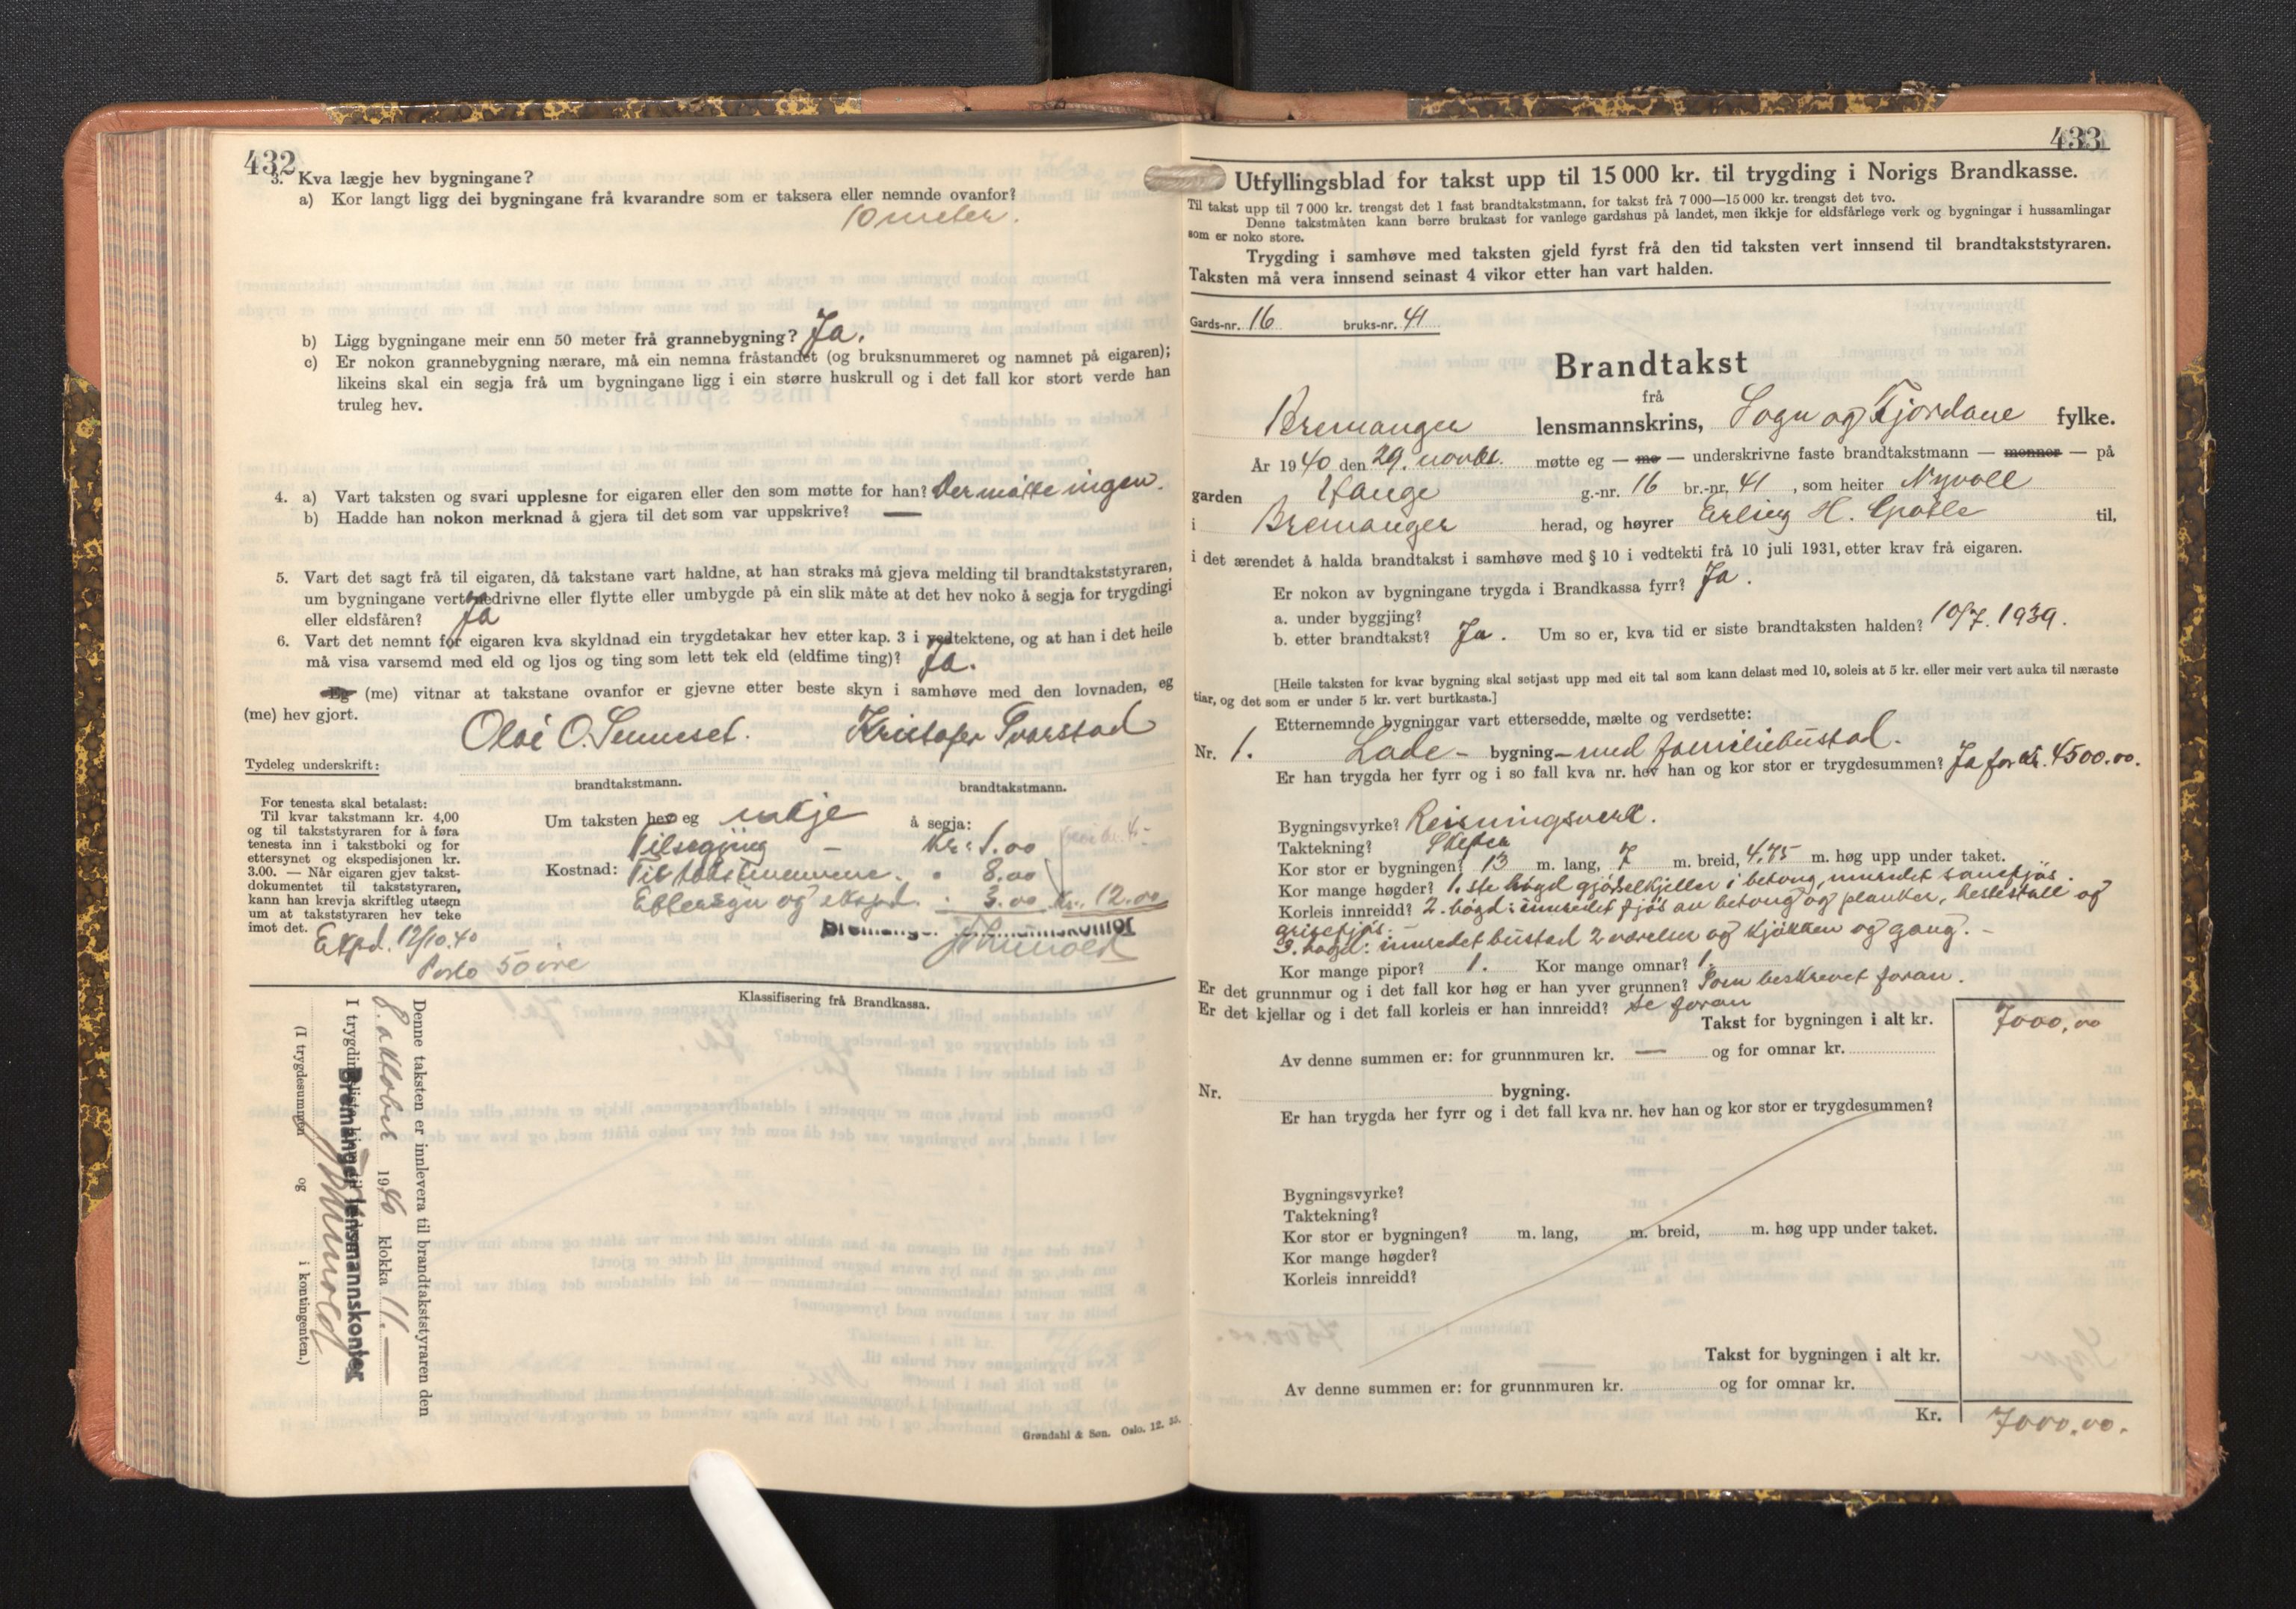 432
3. Kva lægje hev bygningane?
a) Kor langt ligg dei bygningane frå kvarandre som er taksera eller nemnde ovanfor?
10 meter.
b) Ligg bygningane meir enn 50 meter frå grannebygning? Ja.
c) Er nokon grannebygning nærare, må ein nemna fråstandet (og bruksnummeret og namnet på eigaren);
likeins skal ein segja frå um bygningane ligg i ein større huskrull og i det fall kor stort verde han
truleg hev.
4. a) Vart taksten og svari upplesne for eigaren eller den som møtte for han? Der møtte ingen.
b) Hadde han nokon merknad å gjera til det som var uppskrive? —
5. Vart det sagt frå til eigaren, då takstane vart haldne, at han straks må gjeva melding til brandtakststyraren,
um bygningane vert nedrivne eller flytte eller umbygde på ein slik måte at det hev noko å segja for trygdingi
eller eldsfåren? Ja
6. Vart det nemnt for eigaren kva skyldnad ein trygdetakar hev etter kap. 3 i vedtektene, og at han i det heile
må visa varsemd med eld og ljos og ting som lett tek eld (eldfime ting)? Ja.
Eg (me) vitnar at takstane ovanfor er gjevne etter beste skyn i samhøve med den lovnaden, eg
(me) hev gjort.
Olai O. Senneset. Kristofer Tvarstad
Tydeleg underskrift:
brandtakstmann. brandtakstmann.
For tenesta skal betalast:
Til kvar takstmann kr. 4,00
og til takststyraren for å føra
tenesta inn i takstboki og for
ettersynet og ekspedisjonen kr.
3.00. — Når eigaren gjev takst-
dokumentet til takststyraren,
kann han krevja skriftleg utsegn
um at takststyraren hev teke
imot det.
Um taksten hev eg inkje å segja:
Tilsegjing – Kr. 1.00
Kostnad: Til takstmennene. " 8.00
Ettersyn og eksped. " 3.00 Kr. 12.00
Bremanger lensmannskontor
Expd. 12/10.40
Porto 50 øre
Klassifisering frå Brandkassa.
Denne taksten er innlevera til brandtakststyraren den
8. oktober 1940 klokka 11.—
Bremanger lensmannskontor
(I trygdesummen og i kontingenten.)
Grøndahl & Søn. Oslo. 12. 35.
433
Utfyllingsblad for takst upp til 15 000 kr. til trygding i Norigs Brandkasse.
Til takst upp til 7 000 kr. trengst det 1 fast brandtakstmann, for takst frå 7 000—15 000 kr. trengst det tvo.
Denne takstmåten kann berre brukast for vanlege gardshus på landet, men ikkje for eldsfårlege verk og bygningar i hussamlingar
som er noko store.
Trygding i samhøve med taksten gjeld fyrst frå den tid taksten vert innsend til brandtakststyraren.
Taksten må vera innsend seinast 4 vikor etter han vart halden.
Gards-nr. 16 bruks-nr. 41
Brandtakst
frå
Bremanger lensmannskrins, Sogn og Fjordane fylke.
År 1940 den 29. novbr. møtte eg — me — underskrivne faste brandtakstmann — menner — på
garden Hauge g.-nr. 16 br.-nr. 41, som heiter Nyvoll
i Bremanger herad, og høyrer Erling H. til,
i det ærendet å halda brandtakst i samhøve med § 10 i vedtekti frå 10 juli 1931, etter krav frå eigaren.
Er nokon av bygningane trygda i Brandkassa fyrr? Ja.
a. under byggjing?
b. etter brandtakst? Ja. Um so er, kva tid er siste brandtaksten halden? 10/7. 1939.
[Heile taksten for kvar bygning skal setjast upp med eit tal som kann delast med 10, soleis at 5 kr. eller meir vert auka til næraste
tiar, og det som er under 5 kr. vert burtkasta.]
Etternemnde bygningar vart ettersedde, mælte og verdsette:
Nr. 1. Løde- bygning - med familiebustad.
Er han trygda her fyrr og i so fall kva nr. hev han og kor stor er trygdesummen? Ja for kr. 4500.00.
Bygningsvyrke? Reisningsverk.
Taktekning? Skifer
Kor stor er bygningen? 13 m. lang, 7 m. breid, 4.75 m. høg upp under taket.
Kor mange høgder? 1.ste høgd gjødselkjeller i betong, innredet sauefjøs.
Korleis innreidd? 2. høgd: innredet fjøs av betong og planker, hestestall og
grisefjøs. –
3. høgd: innredet bustad 2 værelser og kjøkken og gang. –
Kor mange pipor? 1. Kor mange omnar? 1.
Er det grunnmur og i det fall kor høg er han yver grunnen? Som beskrevet foran.
Er det kjellar og i det fall korleis er han innreidd? se foran
Takst for bygningen i alt kr. 7000,00
Av denne summen er: for grunnmuren kr. — og for omnar kr.
Nr. bygning.
Er han trygda her fyrr og i det fall kva nr. hev han og kor stor er trygdesummen?
Bygningsvyrke?
Taktekning?
Kor stor er bygningen? m. lang, m. breid, m. høg upp under taket.
Kor mange høgder?
Korleis innreidd?
Takst for bygningen i alt kr.
Av denne summen er: for grunnmuren kr. og for omnar kr.
Kr. 7000.00.